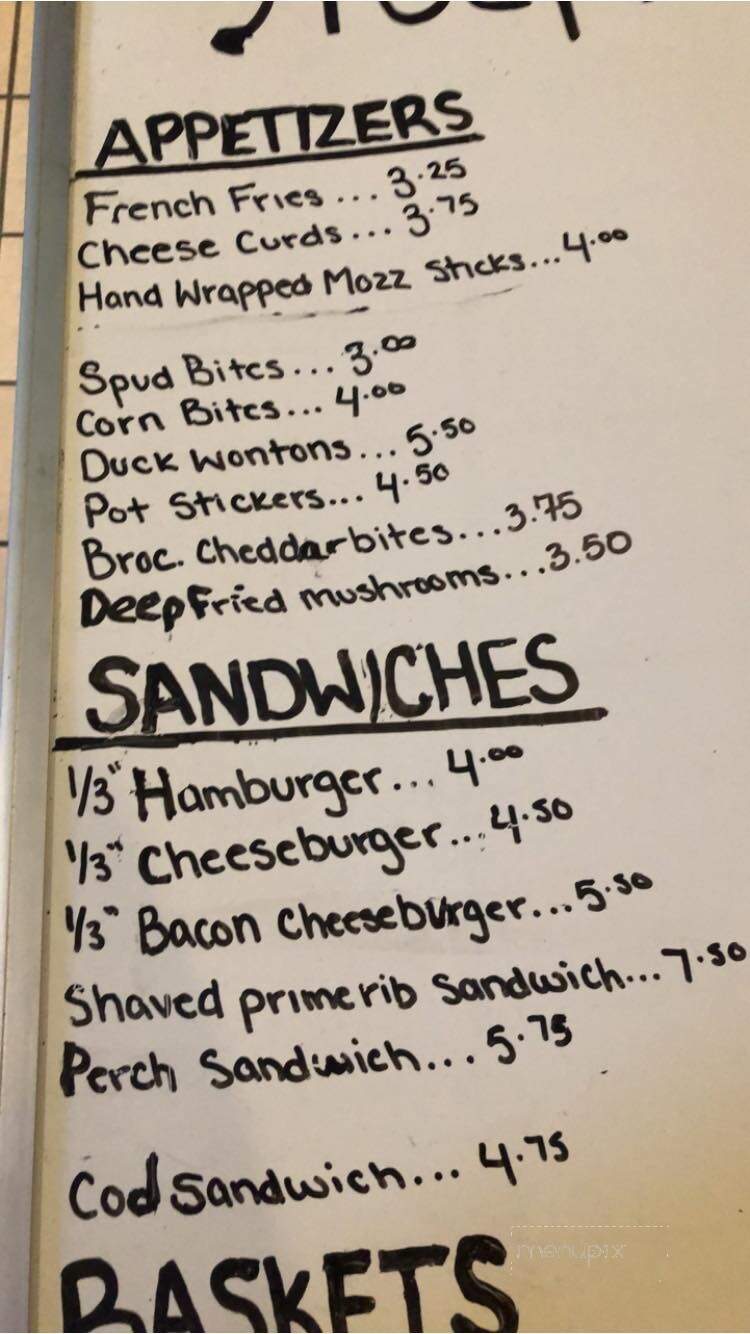 APPETIZERS
French Fries ... 3.25
Cheese Curds ... 3.75
Hand Wrapped Mozz Sticks...4.00
Spud Bites... 3.00
Corn Bites... 4.00
Duck Wontons... 5.50
Pot Stickers... 4.50
Broc. Cheddar bites...3.75
Deep Fried mushrooms...3.50
SANDWICHES
1/3" Hamburger... 4.00
1/3" Cheeseburger... 4.50
1/3" Bacon Cheeseburger...5.50
Shaved prime rib Sandwich...7.50
Perch Sandwich... 5.75
Cod Sandwich... 4.75
BASKETS
menupix